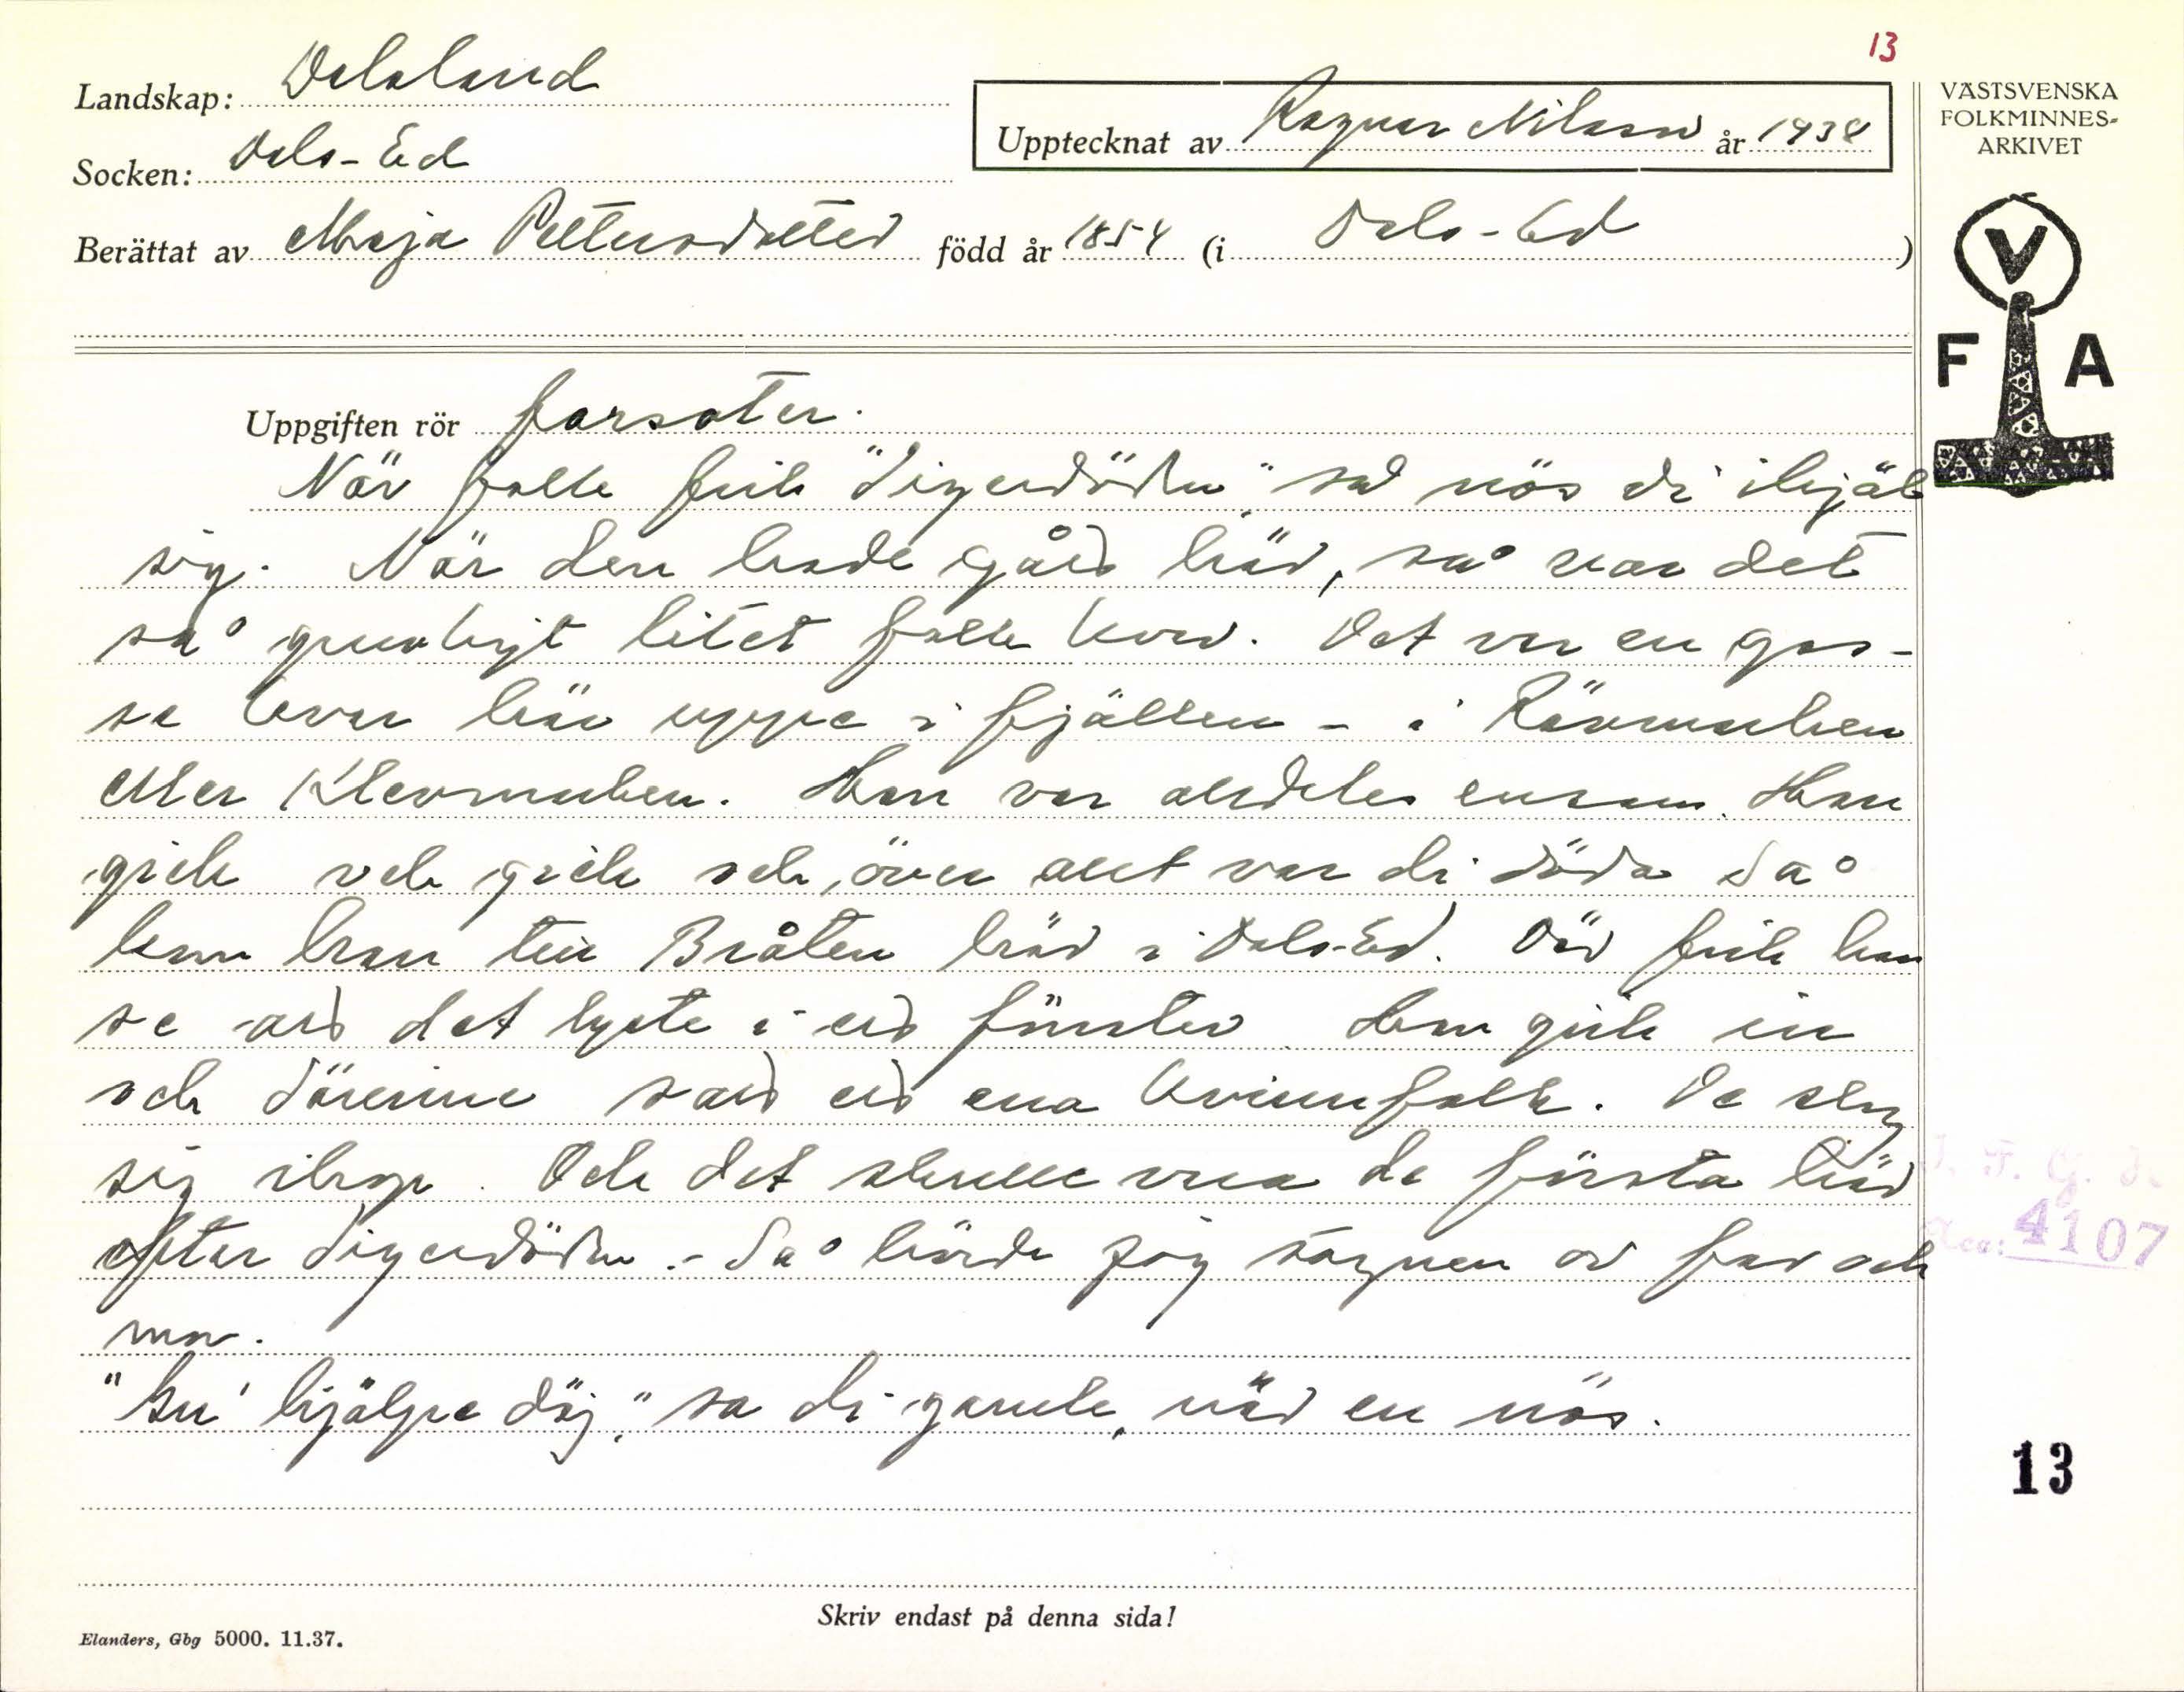 13
Landskap: Dalsland
Upptecknat av Ragnar Nilsson år 1938
Socken: Dals-Ed
Berättat av Maja Pettersdotter född år 1854 (i Dals-Ed )
VÄSTSVENSKA
FOLKMINNES-
ARKIVET
V
F A
Uppgiften rör farsoter.
När folk fick "digerdöden" så nös di ihjäl
sig. När den hade gått här, så var det
så gruvligt litet folk kvar. Det var en gos-
se kvar här uppe i fjällen - i Rävmarken
eller Klevmarken. Han var alldeles ensam. Han
gick och gick och över allt var di döda. Så
kom han till Bråten här i Dals-Ed. Där fick han
se att det lyste i ett fönster. Han gick in
och därinne satt ett ena kvinnfolk. De slog
sig ihop. Och det skulle vara de första här
efter digerdöden. - Så hörde jag sägnen av far och
mor.
"Gu' hjälpe däj," sa di gamle, när en nös.
4107
13
Skriv endast på denna sida!
Elanders, Gbg 5000. 11.37.